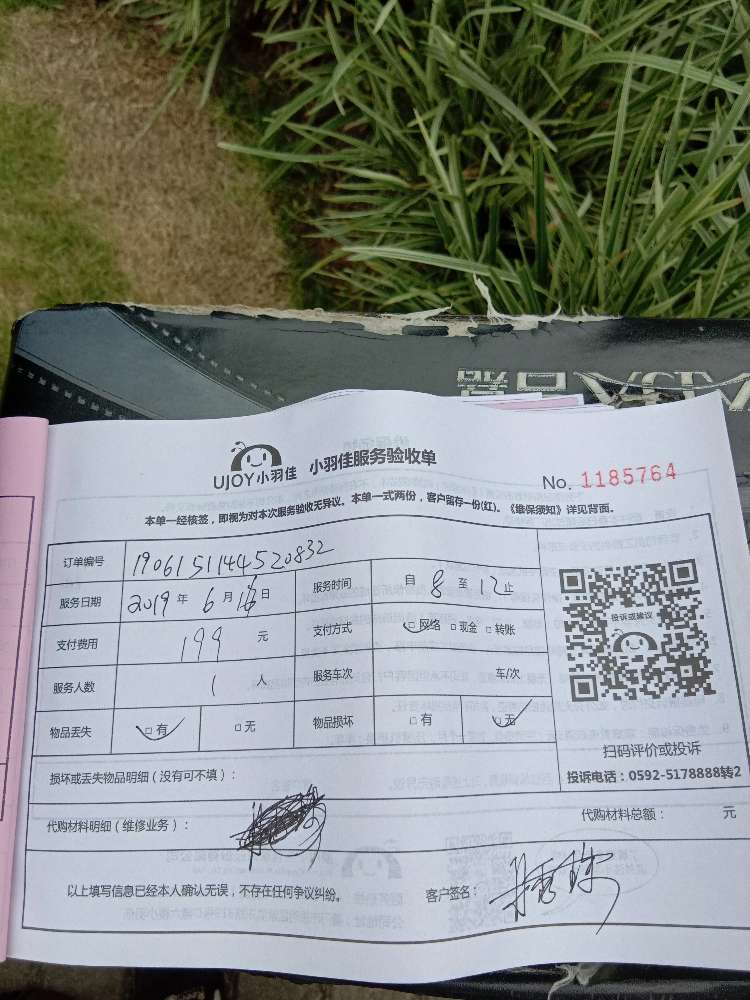 UJOY小羽佳 小羽佳服务验收单
No. 1185764
本单一经核签，即视为对本次服务验收无异议。本单一式两份，客户留存一份(红)。《维保须知》详见背面。
订单编号 1906151144520832
服务日期 2019 年 6 月 16 日 服务时间 自 8 至 12 止
支付费用 199 元 支付方式 □网络 □现金 □转账
服务人数 1 人 服务车次 车/次
物品丢失 □有 □无 物品损坏 □有 □无
投诉或建议
扫码评价或投诉
投诉电话：0592-5178888转2
损坏或丢失物品明细（没有可不填）：
代购材料明细（维修业务）： 代购材料总额： 元
以上填写信息已经本人确认无误，不存在任何争议纠纷。 客户签名：